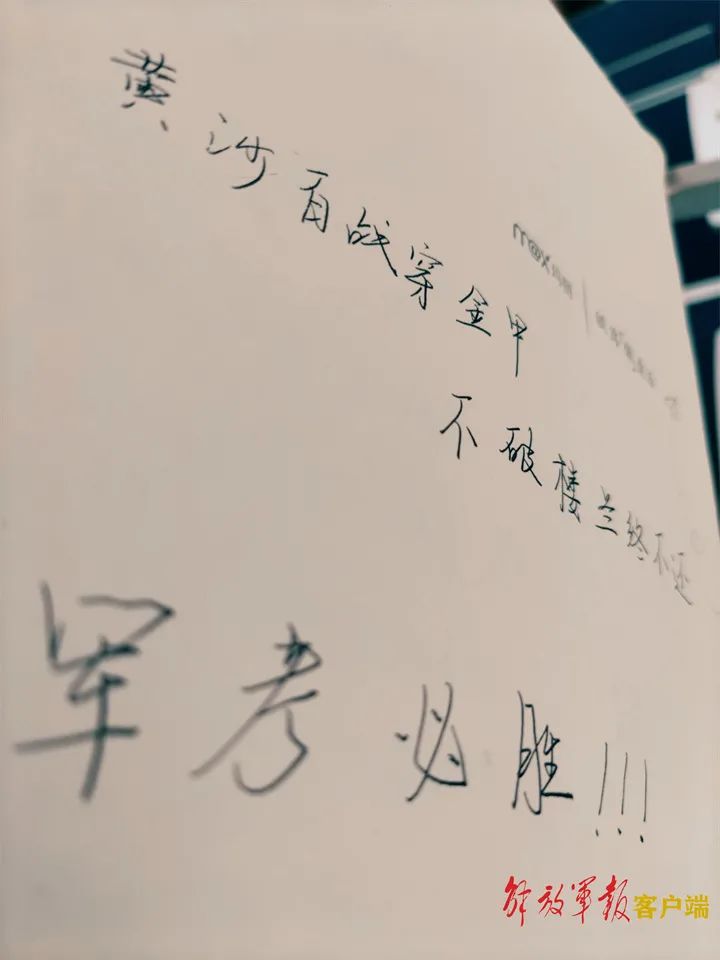 黄沙百战穿金甲
不破楼兰终不还
军考必胜!!!
m@x
解放軍報客户端